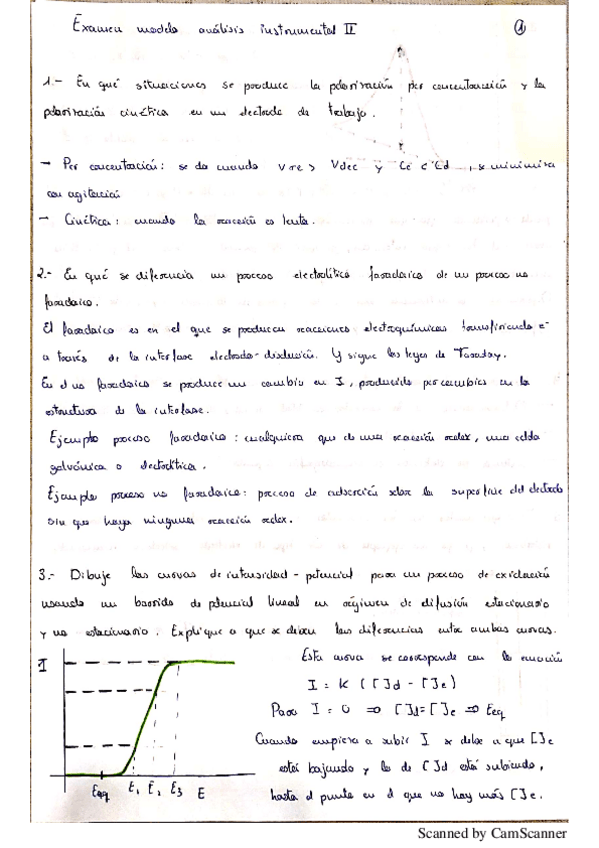 Examen modelo análisis instrumental II
1
1.- En qué situaciones se produce la polarización por concentración y la
polarización cinética en un electrodo de trabajo.
- Por concentración: se da cuando Vre > Vdec y Ce < Cd, se minimiza
con agitación
- Cinética: cuando la reacción es lenta.
2.- En qué se diferencia un proceso electrolítico faradaico de un proceso no
faradaico.
El faradaico es en el que se producen reacciones electroquímicas transfiriendo e-
a través de la interfase electrodo-disolución. Y sigue las leyes de Faraday.
En el no faradaico se produce un cambio en I, producido por cambios en la
estructura de la interfase.
Ejemplo proceso faradaico: cualquiera que de una reacción redox, una celda
galvánica o electrolítica.
Ejemplo proceso no faradaico: proceso de adsorción sobre la superficie del electrodo
sin que haya ninguna reacción redox.
3.- Dibuje las curvas de intensidad-potencial para un proceso de oxidación
usando un barrido de potencial lineal en régimen de difusión estacionario
y no estacionario. Explique a que se deben las diferencias entre ambas curvas.
I
Esta curva se corresponde con la ecuación
I = K ([ ]d - [ ]e)
Para I = 0 => [ ]d = [ ]e => Eeq
Cuando empieza a subir I se debe a que [ ]e
está bajando y la de [ ]d está subiendo,
hasta el punto en el que no hay más [ ]e.
Eeq E1 E2 E3 E
Scanned by CamScanner